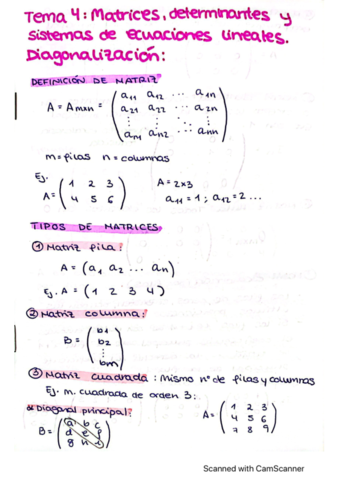 Tema 4: Matrices, determinantes y
sistemas de ecuaciones lineales.
Diagonalización:
DEFINICIÓN DE MATRIZ
A = Amxn = ( a11 a12 ... a1n
a21 a22 ... a2n
⋮ ⋮ ⋱ ⋮
an1 an2 ... ann )
m = filas n = columnas
Ej. A = ( 1 2 3
4 5 6 ) A = 2x3
a11 = 1 ; a12 = 2 ...
TIPOS DE MATRICES:
① Matriz fila:
A = (a1 a2 ... an)
Ej. A = ( 1 2 3 4 )
② Matriz columna:
B = ( b1
b2
⋮
bm )
③ Matriz cuadrada : Mismo nº de filas y columnas
Ej. m. cuadrada de orden 3:
Diagonal principal?
B = ( a b c
d e f
g h i )
A = ( 1 2 3
4 5 6
7 8 9 )
Scanned with CamScanner